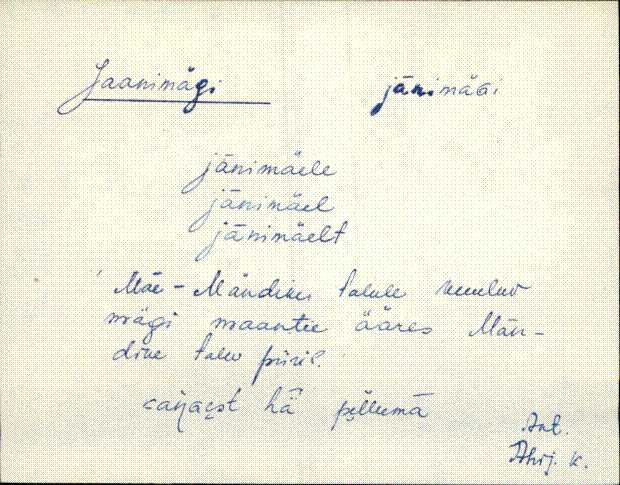 Jaanimägi jānimäGi
jānimäele
jānimäel
jānimäelt
Mäe-Mändiku talule kuuluv
mägi maantee ääres Män-
diku talu piiril.
hǟ pęllumā
Ant.
Ahij. k.